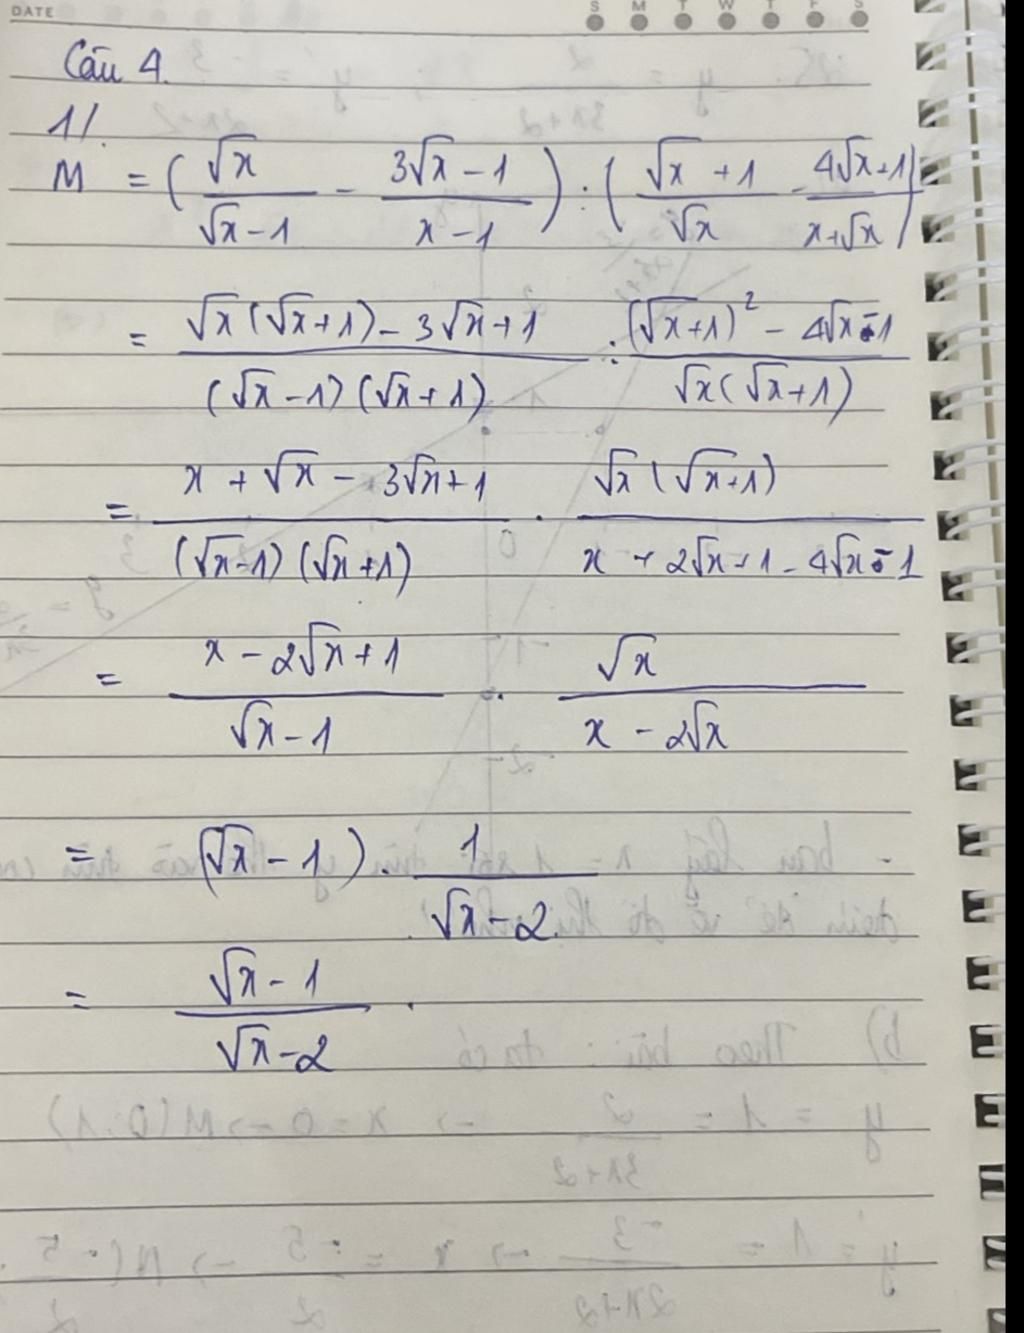 DATE
S M T W T F S
Câu 4.
1/.
M = ( √x / (√x - 1) - (3√x - 1) / (x - 1) ) : ( (√x + 1) / √x - (4√x + 1) / (x + √x) )
= (√x (√x + 1) - 3√x + 1) / ((√x - 1) (√x + 1)) : ((√x + 1)² - 4√x - 1) / (√x (√x + 1))
= (x + √x - 3√x + 1) / ((√x - 1) (√x + 1)) . (√x (√x + 1)) / (x + 2√x + 1 - 4√x - 1)
= (x - 2√x + 1) / (√x - 1) . √x / (x - 2√x)
= (√x - 1) . 1 / (√x - 2).
= (√x - 1) / (√x - 2) .